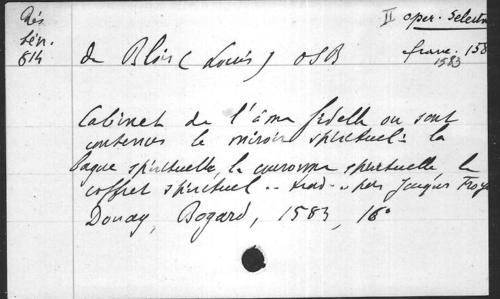 Rés
Sém.
814
II oper. selecta
franc. 158
1583
de Blois (Louis) OSB
Cabinet de l'âme fidelle ou sont
contenues le miroir spirituel: la
bague spirituelle, la couronne spirituelle le
coffret spirituel .. trad .. par Jacques Froy
Douay, Bogard, 1583, 16°